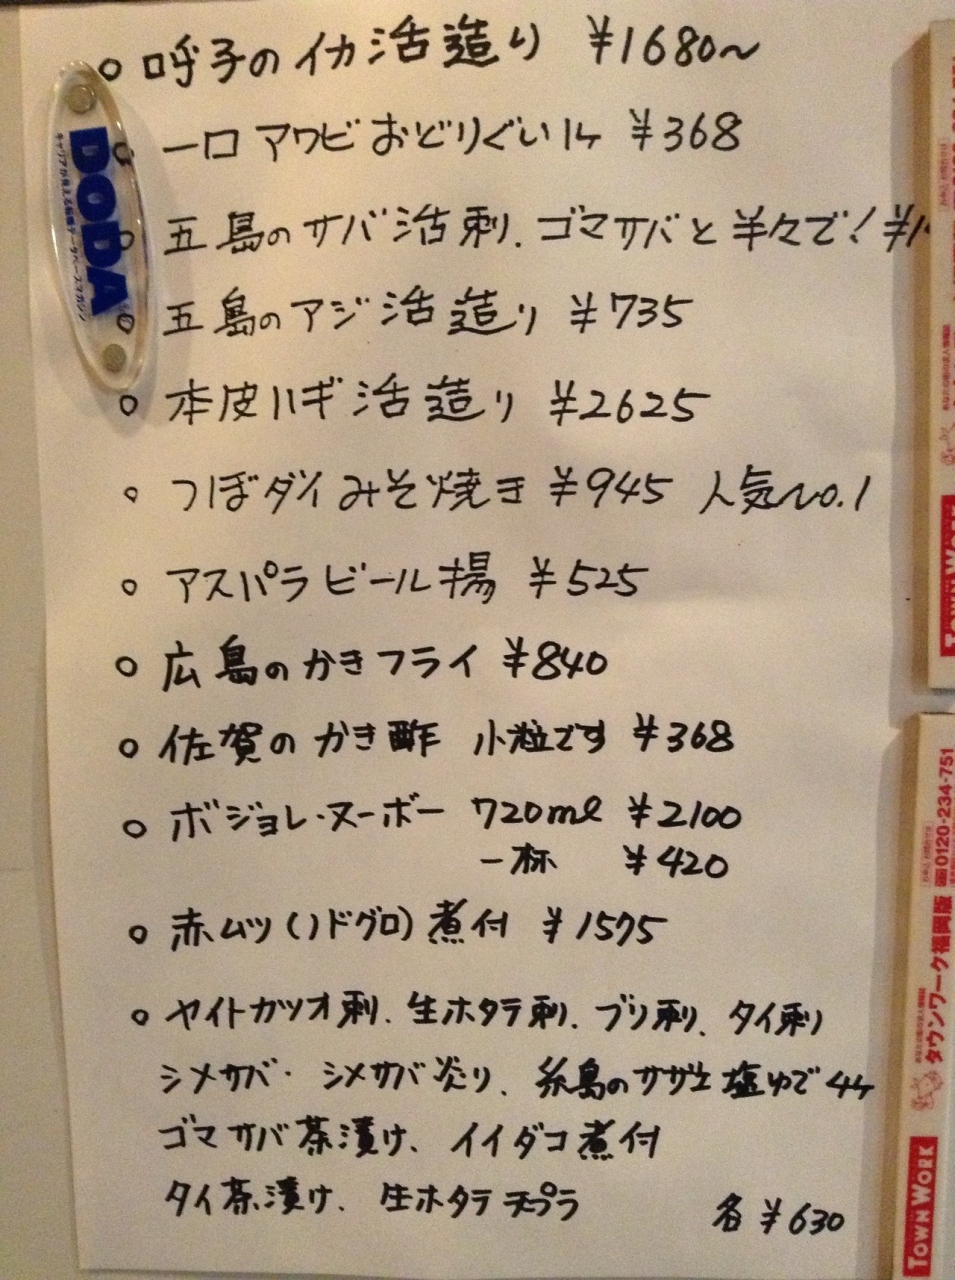 ○ 呼子のイカ活造り ¥1680〜
○ 一口アワビおどりぐい1ケ ¥368
○ 五島のサバ活刺、ゴマサバと半々で! ¥1
○ 五島のアジ活造り ¥735
○ 本皮ハギ活造り ¥2625
○ つぼダイみそ焼き ¥945 人気No.1
○ アスパラビール揚 ¥525
○ 広島のかきフライ ¥840
○ 佐賀のかき酢 小粒です ¥368
○ ボジョレ・ヌーボー 720ml ¥2100
一杯 ¥420
○ 赤ムツ(ノドグロ)煮付 ¥1575
○ ヤイトガツオ刺、生ホタテ刺、ブリ刺、タイ刺
シメサバ・シメサバ炙り、糸島のサザエ塩ゆで4ケ
ゴマサバ茶漬け、イイダコ煮付
タイ茶漬け、生ホタテ天プラ
各 ¥630
DODA
TOWN WORK
0120-234-751
タウンワーク福岡版
TOWN WORK